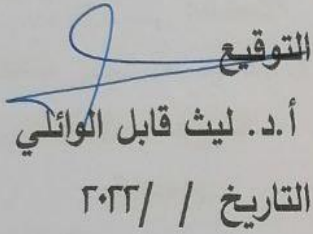 التوقيع
أ.د. ليث قابل الوائلي
التاريخ / /٢٠٢٢